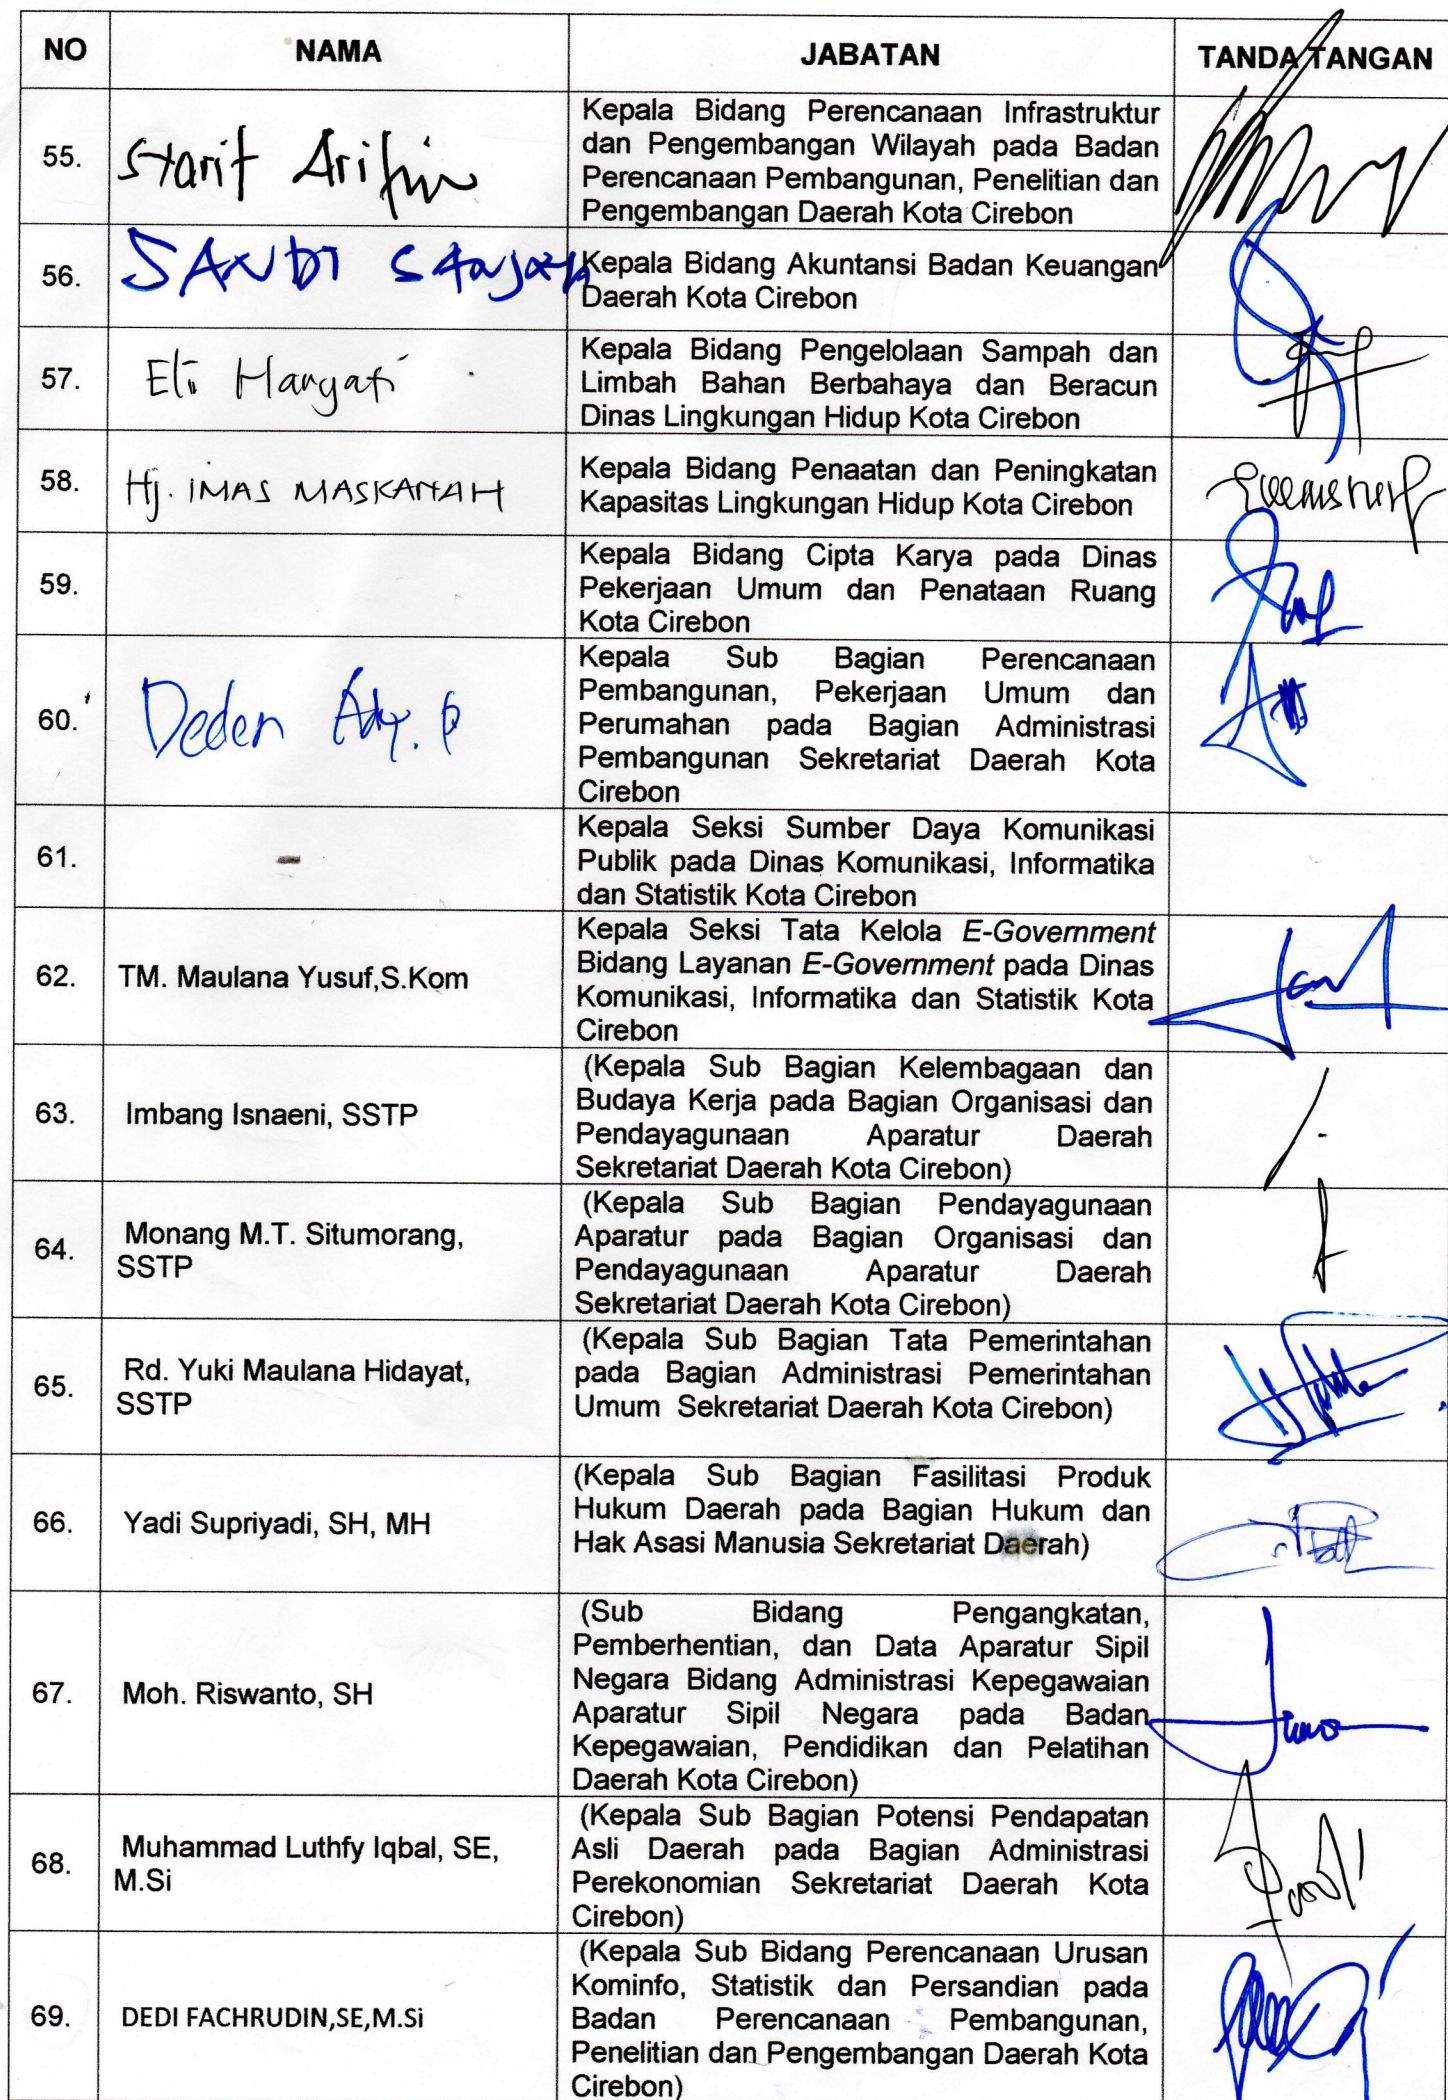 NO NAMA JABATAN TANDA TANGAN
55. Starif Arifin
Kepala Bidang Perencanaan Infrastruktur
dan Pengembangan Wilayah pada Badan
Perencanaan Pembangunan, Penelitian dan
Pengembangan Daerah Kota Cirebon
56. SANDI
Kepala Bidang Akuntansi Badan Keuangan
Daerah Kota Cirebon
57. Eli Haryati
Kepala Bidang Pengelolaan Sampah dan
Limbah Bahan Berbahaya dan Beracun
Dinas Lingkungan Hidup Kota Cirebon
58. Hj. IMAS MASKANAH
Kepala Bidang Penaatan dan Peningkatan
Kapasitas Lingkungan Hidup Kota Cirebon
59.
Kepala Bidang Cipta Karya pada Dinas
Pekerjaan Umum dan Penataan Ruang
Kota Cirebon
60. Deden Ady. P
Kepala Sub Bagian Perencanaan
Pembangunan, Pekerjaan Umum dan
Perumahan pada Bagian Administrasi
Pembangunan Sekretariat Daerah Kota
Cirebon
61. -
Kepala Seksi Sumber Daya Komunikasi
Publik pada Dinas Komunikasi, Informatika
dan Statistik Kota Cirebon
62. TM. Maulana Yusuf,S.Kom
Kepala Seksi Tata Kelola E-Government
Bidang Layanan E-Government pada Dinas
Komunikasi, Informatika dan Statistik Kota
Cirebon
63. Imbang Isnaeni, SSTP
(Kepala Sub Bagian Kelembagaan dan
Budaya Kerja pada Bagian Organisasi dan
Pendayagunaan Aparatur Daerah
Sekretariat Daerah Kota Cirebon)
64. Monang M.T. Situmorang,
SSTP
(Kepala Sub Bagian Pendayagunaan
Aparatur pada Bagian Organisasi dan
Pendayagunaan Aparatur Daerah
Sekretariat Daerah Kota Cirebon)
65. Rd. Yuki Maulana Hidayat,
SSTP
(Kepala Sub Bagian Tata Pemerintahan
pada Bagian Administrasi Pemerintahan
Umum Sekretariat Daerah Kota Cirebon)
66. Yadi Supriyadi, SH, MH
(Kepala Sub Bagian Fasilitasi Produk
Hukum Daerah pada Bagian Hukum dan
Hak Asasi Manusia Sekretariat Daerah)
67. Moh. Riswanto, SH
(Sub Bidang Pengangkatan,
Pemberhentian, dan Data Aparatur Sipil
Negara Bidang Administrasi Kepegawaian
Aparatur Sipil Negara pada Badan
Kepegawaian, Pendidikan dan Pelatihan
Daerah Kota Cirebon)
68. Muhammad Luthfy Iqbal, SE,
M.Si
(Kepala Sub Bagian Potensi Pendapatan
Asli Daerah pada Bagian Administrasi
Perekonomian Sekretariat Daerah Kota
Cirebon)
69. DEDI FACHRUDIN,SE,M.Si
(Kepala Sub Bidang Perencanaan Urusan
Kominfo, Statistik dan Persandian pada
Badan Perencanaan Pembangunan,
Penelitian dan Pengembangan Daerah Kota
Cirebon)